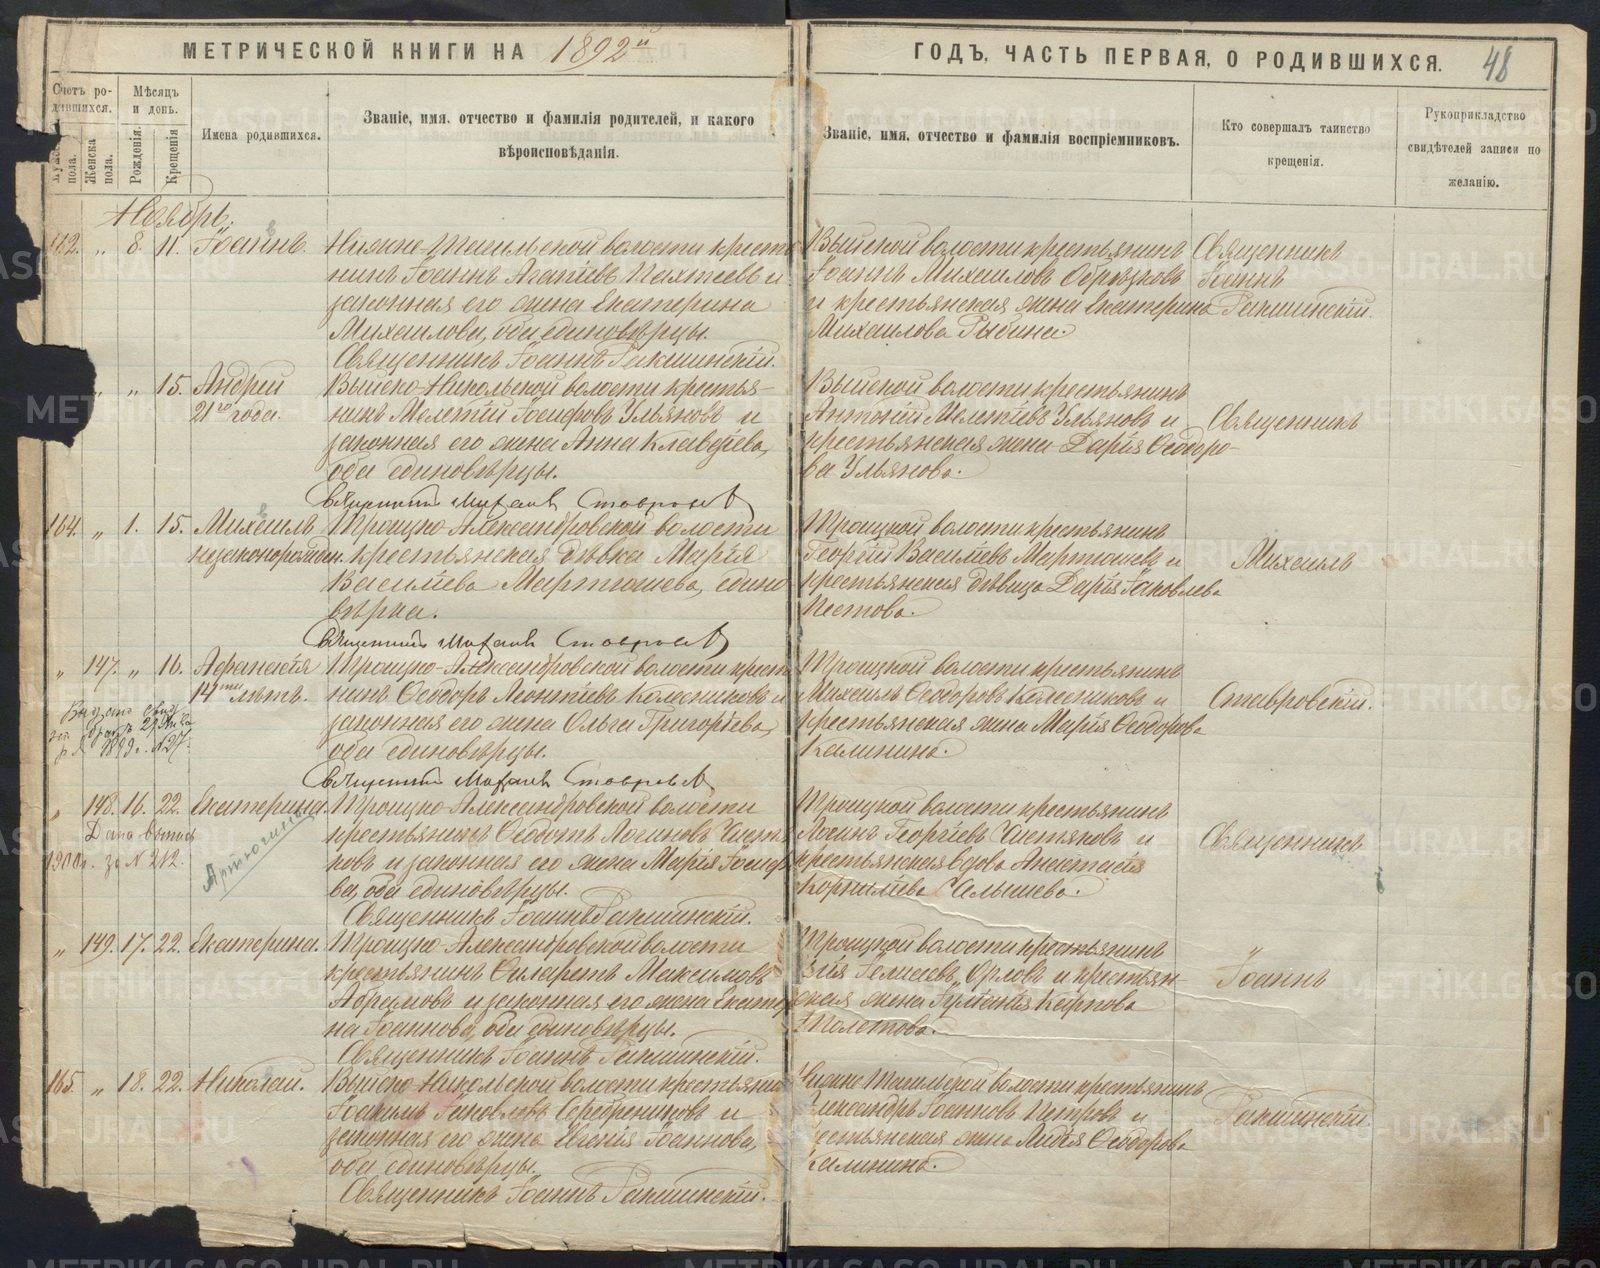 МЕТРИЧЕСКОЙ КНИГИ НА 1892й
ГОДЪ, ЧАСТЬ ПЕРВАЯ, О РОДИВШИХСЯ. 48
Счетъ родившихся.
Мѣсяцъ и день.
Женска пола.
Рожденія.
Крещенія
Имена родившихся.
Званіе, имя, отчество и фамилія родителей, и какого
вѣроисповѣданія.
Званіе, имя, отчество и фамилія воспріемниковъ.
Кто совершалъ таинство
крещенія.
Рукоприкладство
свидѣтелей записи по
желанію.
Ноябрь.
162. " 8. 11. Іоаннъ.
Нижне-Тагильской волости крестья
нинъ Іоаннъ Агапіевъ Пахтѣевъ и
законная его жена Екатерина
Михаилова, оба единовѣрцы.
Священникъ Іоаннъ Ракшинскій.
Выйской волости крестьянинъ
Іоаннъ Михаиловъ Образковъ
и крестьянская жена Екатерина
Михаилова Рыбина.
Священникъ
Іоаннъ
Ракшинскій.
" " 15. Андрей
21го года.
Выйско-Никольской волости крестья-
нинъ Мелетій Іосифовъ Ульяновъ и
законная его жена Анна Клавдіева,
оба единовѣрцы.
Священникъ Михаилъ Ставровскій
Выйской волости крестьянинъ
Антоній Мелетіевъ Ульяновъ и
крестьянская жена Дарія Ѳеодоро-
ва Ульянова.
Священникъ
164. " 1. 15. Михаилъ
незаконорожден.
Троицко-Александровской волости
крестьянская дѣвка Марія
Василіева Мартюшева, едино
вѣрка.
Священникъ Михаилъ Ставровскій
Троицкой волости крестьянинъ
Георгій Василіевъ Мартюшевъ и
крестьянская дѣвица Дарія Іаковлева
Пестова.
Михаилъ
" 147. " 16. Аѳанасія
14ти лѣтъ.
Троицко-Александровской волости крестья
нинъ Ѳеодоръ Леонтіевъ Колесниковъ и
законная его жена Ольга Григоріева,
оба единовѣрцы.
Священникъ Михаилъ Ставровскій
Троицкой волости крестьянинъ
Михаилъ Ѳеодоровъ Колесниковъ и
крестьянская жена Марія Ѳеодорова
Калинина.
Ставровскій.
" 148. 16. 22. Екатерина.
Дана выпись
1900г. за № 212.
Троицко-Александровской волости
крестьянинъ Ѳеодотъ Логиновъ Чистя
ковъ и законная его жена Марія Іосифо
ва, оба единовѣрцы.
Священникъ Іоаннъ Ракшинскій.
Троицкой волости крестьянинъ
Логинъ Георгіевъ Чистяковъ и
крестьянская вдова Анастасія
Корниліева Малышева.
Священникъ
" 149. 17. 22. Екатерина.
Троицко-Александровской волости
крестьянинъ Филаретъ Максимовъ
Абрамовъ и законная его жена Екатери
на Іоаннова, оба единовѣрцы.
Священникъ Іоаннъ Ракшинскій.
Троицкой волости крестьянинъ
Орловъ и крестьян-
ская жена Іуліанія Карпова
Полетова.
Іоаннъ
165. " 18. 22. Николай.
Выйско-Никольской волости крестьяни
Іоакимъ Іаковлевъ Серебренниковъ и
законная его жена Евгенія Іоаннова,
оба единовѣрцы.
Священникъ Іоаннъ Ракшинскій.
Нижне-Тагильской волости крестьянинъ
Александръ Іоанновъ Петровъ и
крестьянская жена Лидія Ѳеодорова
Калинина.
Ракшинскій.
METRIKI.GASO-URAL.RU